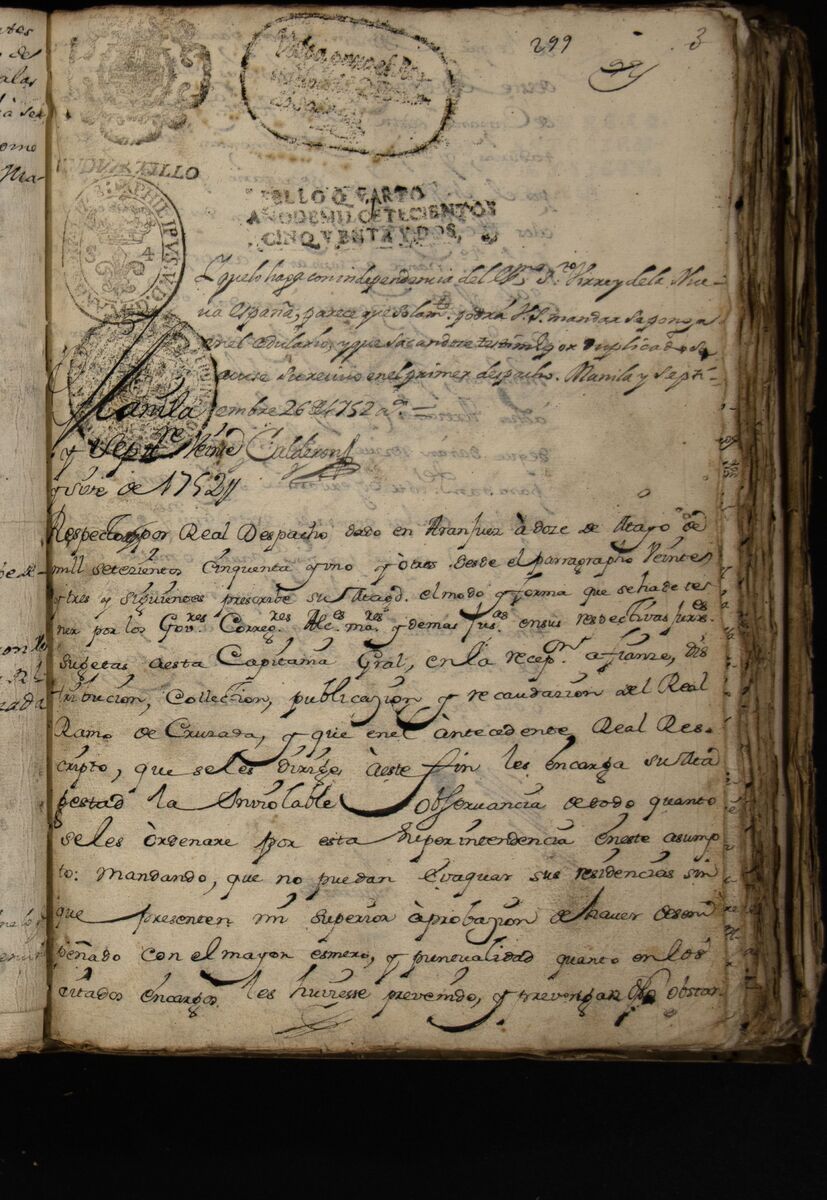 299
3
VN QVARTILLO
PHILIPVS.V.D.G.
8 4
SELLO QVARTO
AÑODEMILSETECIENTOS
CINQVENTAYDOS,
Y que lo haga con independencia del Virrey de la Nue-
va España, parece que V.S. mandar se ponga
en el cedulario, y que sacandose testimº por duplicado se
acuse su recivo en el primer despacho. Manila y Septi-
embre 26 de 1752 aª =
Calderon
Manila
y Septre Veinte
y siete de 1752
Respecto por Real Despacho dado en Aranjuez à doze de Mayo de
mill setezientos cinquenta y uno y otros desde el parragrapho Veinte
y tres y siguientes prescribe su Magd. el modo y forma que se ha de te
ner por los Govres Corregres Alces mares y demas Jusas en sus respectivas Jures
sugetas a esta Capitania Gral, en la recepon. a fianze, dis
tribucion, Collection, publicazion y recaudazion del Real
Ramo de Cruzada, y que en el antecedente Real Res-
cripto, que se les dirige à este fin les encarga su Mag
pestad la Inviolable Observancia de todo quanto
se les òrdenare por esta Superintendencia èn este asump
to: Mandando, que no puedan Evaquar sus residencias sin
que presenten mi superior àprobazion de haver desem
peñado con el mayor esmero, y puntualidad quanto en los
citados encargos les huviesse prevenido, y obstan